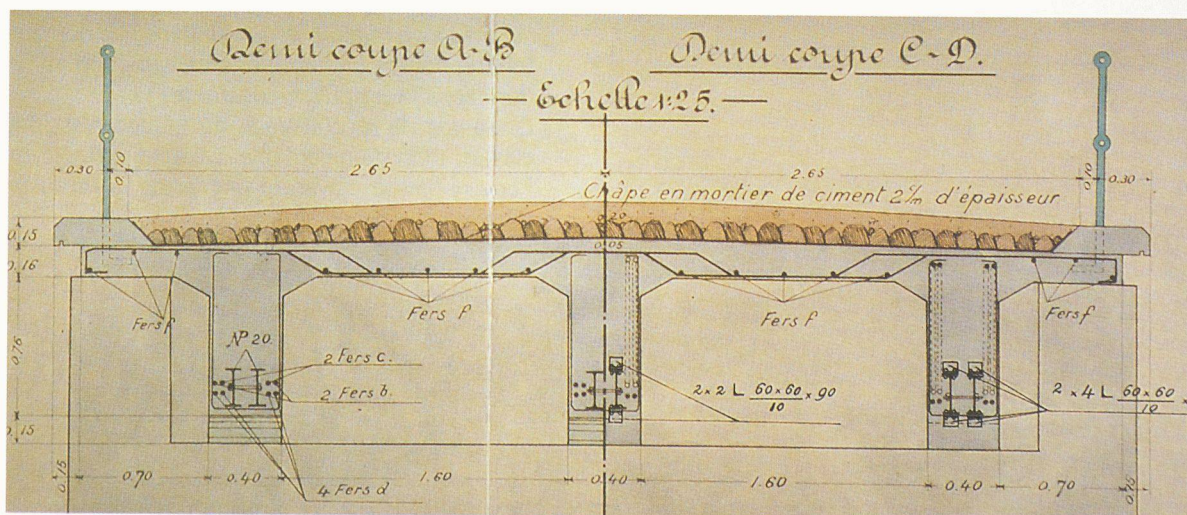 Demi coupe A-B
Demi coupe C-D.
Echelle 1:25.
0.30
0.10
2.65
2.65
0.10
0.30
Châpe en mortier de ciment 2 c/m d'épaisseur
0.20
0.15
0.05
0.16
Fers f
Fers f
Fers f
Fers f
0.76
NP 20.
2 Fers c.
2 Fers b.
2 × 2 L 60×60/10 × 90
2 × 4 L 60×60/10 ×
0.15
0.15
0.70
0.40
1.60
0.40
1.60
0.40
0.70
0.15
4 Fers d